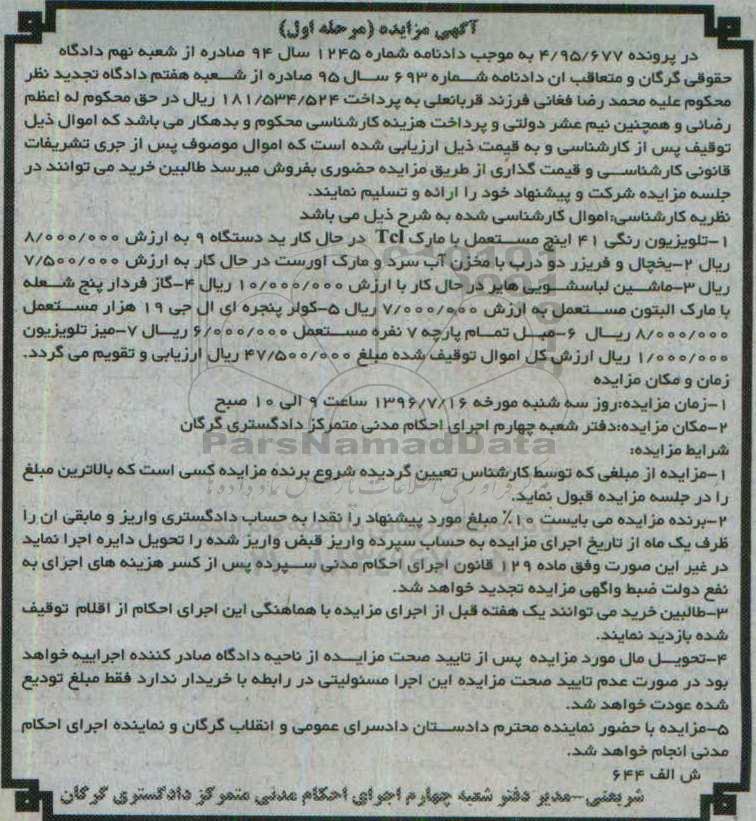 آگهی مزایده (مرحله اول)
در پرونده ۴/۹۵/۶۷۷ به موجب دادنامه شماره ۱۲۴۵ سال ۹۴ صادره از شعبه نهم دادگاه
حقوقی گرگان و متعاقب ان دادنامه شماره ۶۹۳ سال ۹۵ صادره از شعبه هفتم دادگاه تجدید نظر
محکوم علیه محمد رضا فغانی فرزند قربانعلی به پرداخت ۱۸۱/۵۳۴/۵۲۴ ریال در حق محکوم له اعظم
رضائی و همچنین نیم عشر دولتی و پرداخت هزینه کارشناسی محکوم و بدهکار می باشد که اموال ذیل
توقیف پس از کارشناسی و به قیمت ذیل ارزیابی شده است که اموال موصوف پس از جری تشریفات
قانونی کارشناسی و قیمت گذاری از طریق مزایده حضوری بفروش میرسد طالبین خرید می توانند در
جلسه مزایده شرکت و پیشنهاد خود را ارائه و تسلیم نمایند.
نظریه کارشناسی:اموال کارشناسی شده به شرح ذیل می باشد
۱-تلویزیون رنگی ۴۱ اینچ مستعمل با مارک Tcl در حال کار ید دستگاه ۹ به ارزش ۸/۰۰۰/۰۰۰
ریال ۲-یخچال و فریزر دو درب با مخزن آب سرد و مارک اورست در حال کار به ارزش ۷/۵۰۰/۰۰۰
ریال ۳-ماشین لباسشویی هایر در حال کار با ارزش ۱۰/۰۰۰/۰۰۰ ریال ۴-گاز فردار پنج شعله
با مارک البتون مستعمل به ارزش ۷/۰۰۰/۰۰۰ ریال ۵-کولر پنجره ای ال جی ۱۹ هزار مستعمل
۸/۰۰۰/۰۰۰ ریال ۶-مبل تمام پارچه ۷ نفره مستعمل ۶/۰۰۰/۰۰۰ ریال ۷-میز تلویزیون
۱/۰۰۰/۰۰۰ ریال ارزش کل اموال توقیف شده مبلغ ۴۷/۵۰۰/۰۰۰ ریال ارزیابی و تقویم می گردد.
زمان و مکان مزایده
۱-زمان مزایده:روز سه شنبه مورخه ۱۳۹۶/۷/۱۶ ساعت ۹ الی ۱۰ صبح
۲-مکان مزایده:دفتر شعبه چهارم اجرای احکام مدنی متمرکز دادگستری گرگان
ParsNamadData
شرایط مزایده:
۱-مزایده از مبلغی که توسط کارشناس تعیین گردیده شروع برنده مزایده کسی است که بالاترین مبلغ
را در جلسه مزایده قبول نماید.
۲-برنده مزایده می بایست ۱۰٪ مبلغ مورد پیشنهاد را نقدا به حساب دادگستری واریز و مابقی ان را
ظرف یک ماه از تاریخ اجرای مزایده به حساب سپرده واریز قبض واریز شده را تحویل دایره اجرا نماید
در غیر این صورت وفق ماده ۱۲۹ قانون اجرای احکام مدنی سپرده پس از کسر هزینه های اجرای به
نفع دولت ضبط واگهی مزایده تجدید خواهد شد.
۳-طالبین خرید می توانند یک هفته قبل از اجرای مزایده با هماهنگی این اجرای احکام از اقلام توقیف
شده بازدید نمایند.
۴-تحویل مال مورد مزایده پس از تایید صحت مزایده از ناحیه دادگاه صادر کننده اجراییه خواهد
بود در صورت عدم تایید صحت مزایده این اجرا مسئولیتی در رابطه با خریدار ندارد فقط مبلغ تودیع
شده عودت خواهد شد.
۵-مزایده با حضور نماینده محترم دادستان دادسرای عمومی و انقلاب گرگان و نماینده اجرای احکام
مدنی انجام خواهد شد.
ش الف ۶۴۴
شریعتی-مدیر دفتر شعبه چهارم اجرای احکام مدنی متمرکز دادگستری گرگان